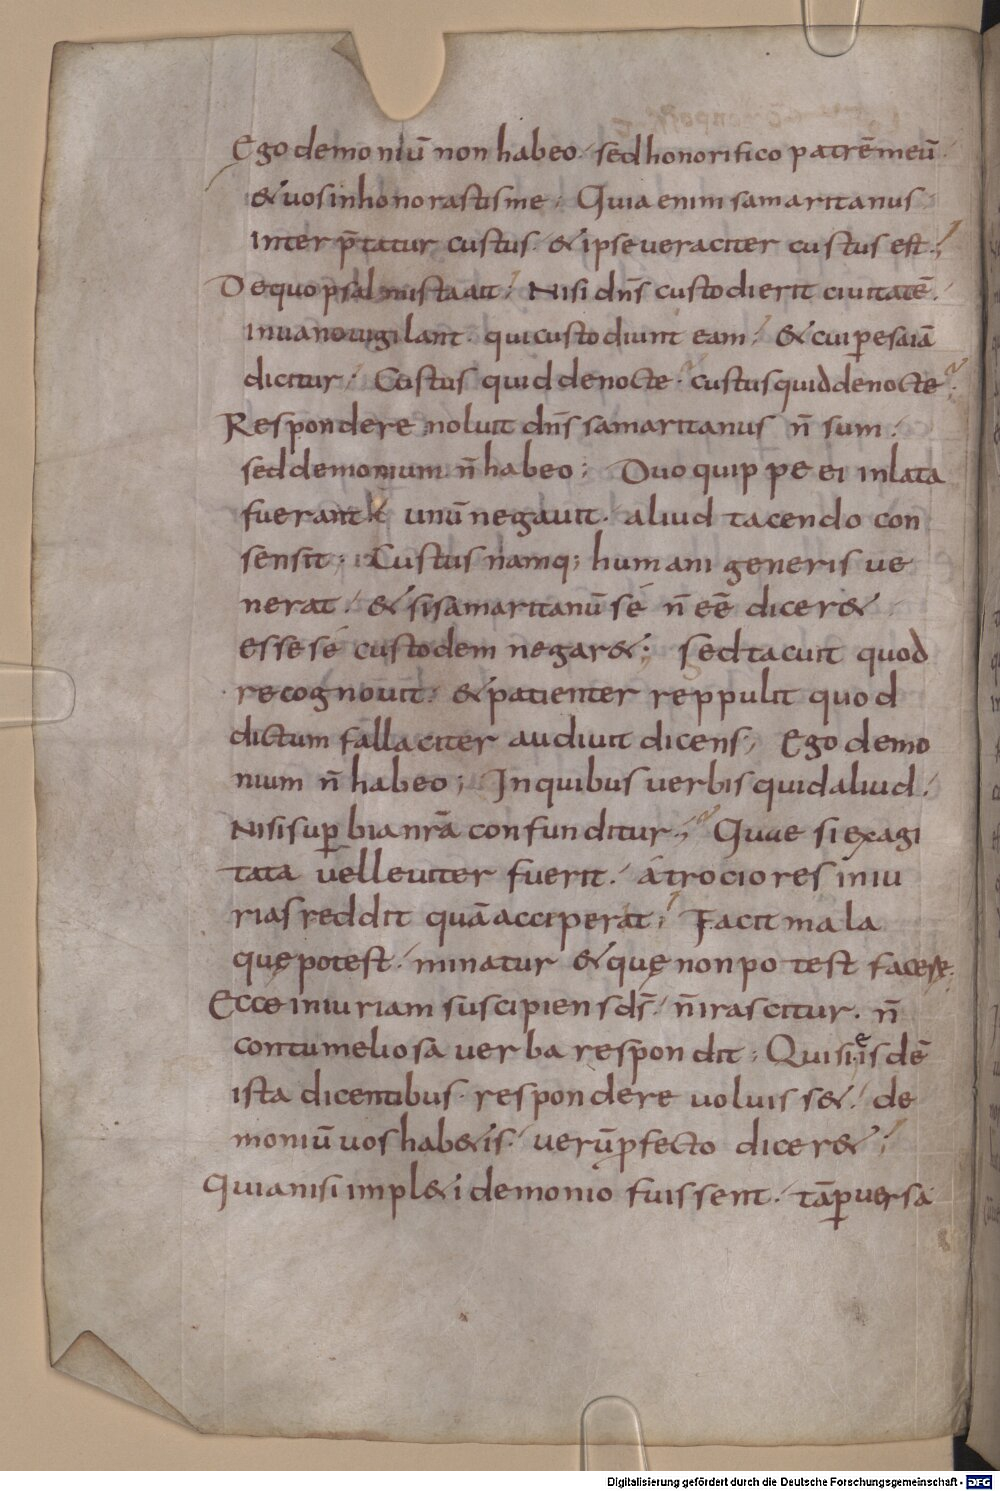 Ego demoniū non habeo. sed honorifico patrē meū.
& vos inhonorastis me. Quia enim samaritanus
inter p̄tatur custus. & ipse veraciter custus est.
De quo psalmista ait. Nisi dn̄s custodierit civitatē.
in vano vigilant. qui custodiunt eam. & cui ꝑ esaiā
dicitur. Custus quid de nocte. custus quid de nocte.
Respondere noluit dn̄s samaritanus n̄ sum.
sed demonium n̄ habeo; Duo quippe ei inlata
fuerant unū negavit. aliud tacendo con
sensit; Custus namq; humani generis ve
nerat. & si samaritanū sé n̄ eē dicer&
esse sé custodem negar&; sed tacuit quod
recognovit. & patienter reppulit quod
dictum fallaciter audivit dicens, Ego demo
nium n̄ habeo; In quibus verbis quid aliud.
Nisi suꝑbia nr̄a confunditur; Quae si exagi
tata vel leviter fuerit. atrociores iniu
rias reddit quā acciperat; Facit mala
quę potest. minatur & quę non potest facere.
Ecce iniuriam suscipiens ds̄. n̄ irascitur. n̄
contumeliosa verba respondit; Qui si eisdē
ista dicentibus. respondere voluiss&. de
moniū vos hab&is. verū ꝓfecto dicer&;
Quia nisi impl&i demonio fuissent. tā ꝑversa
Digitalisierung gefördert durch die Deutsche Forschungsgemeinschaft - DFG